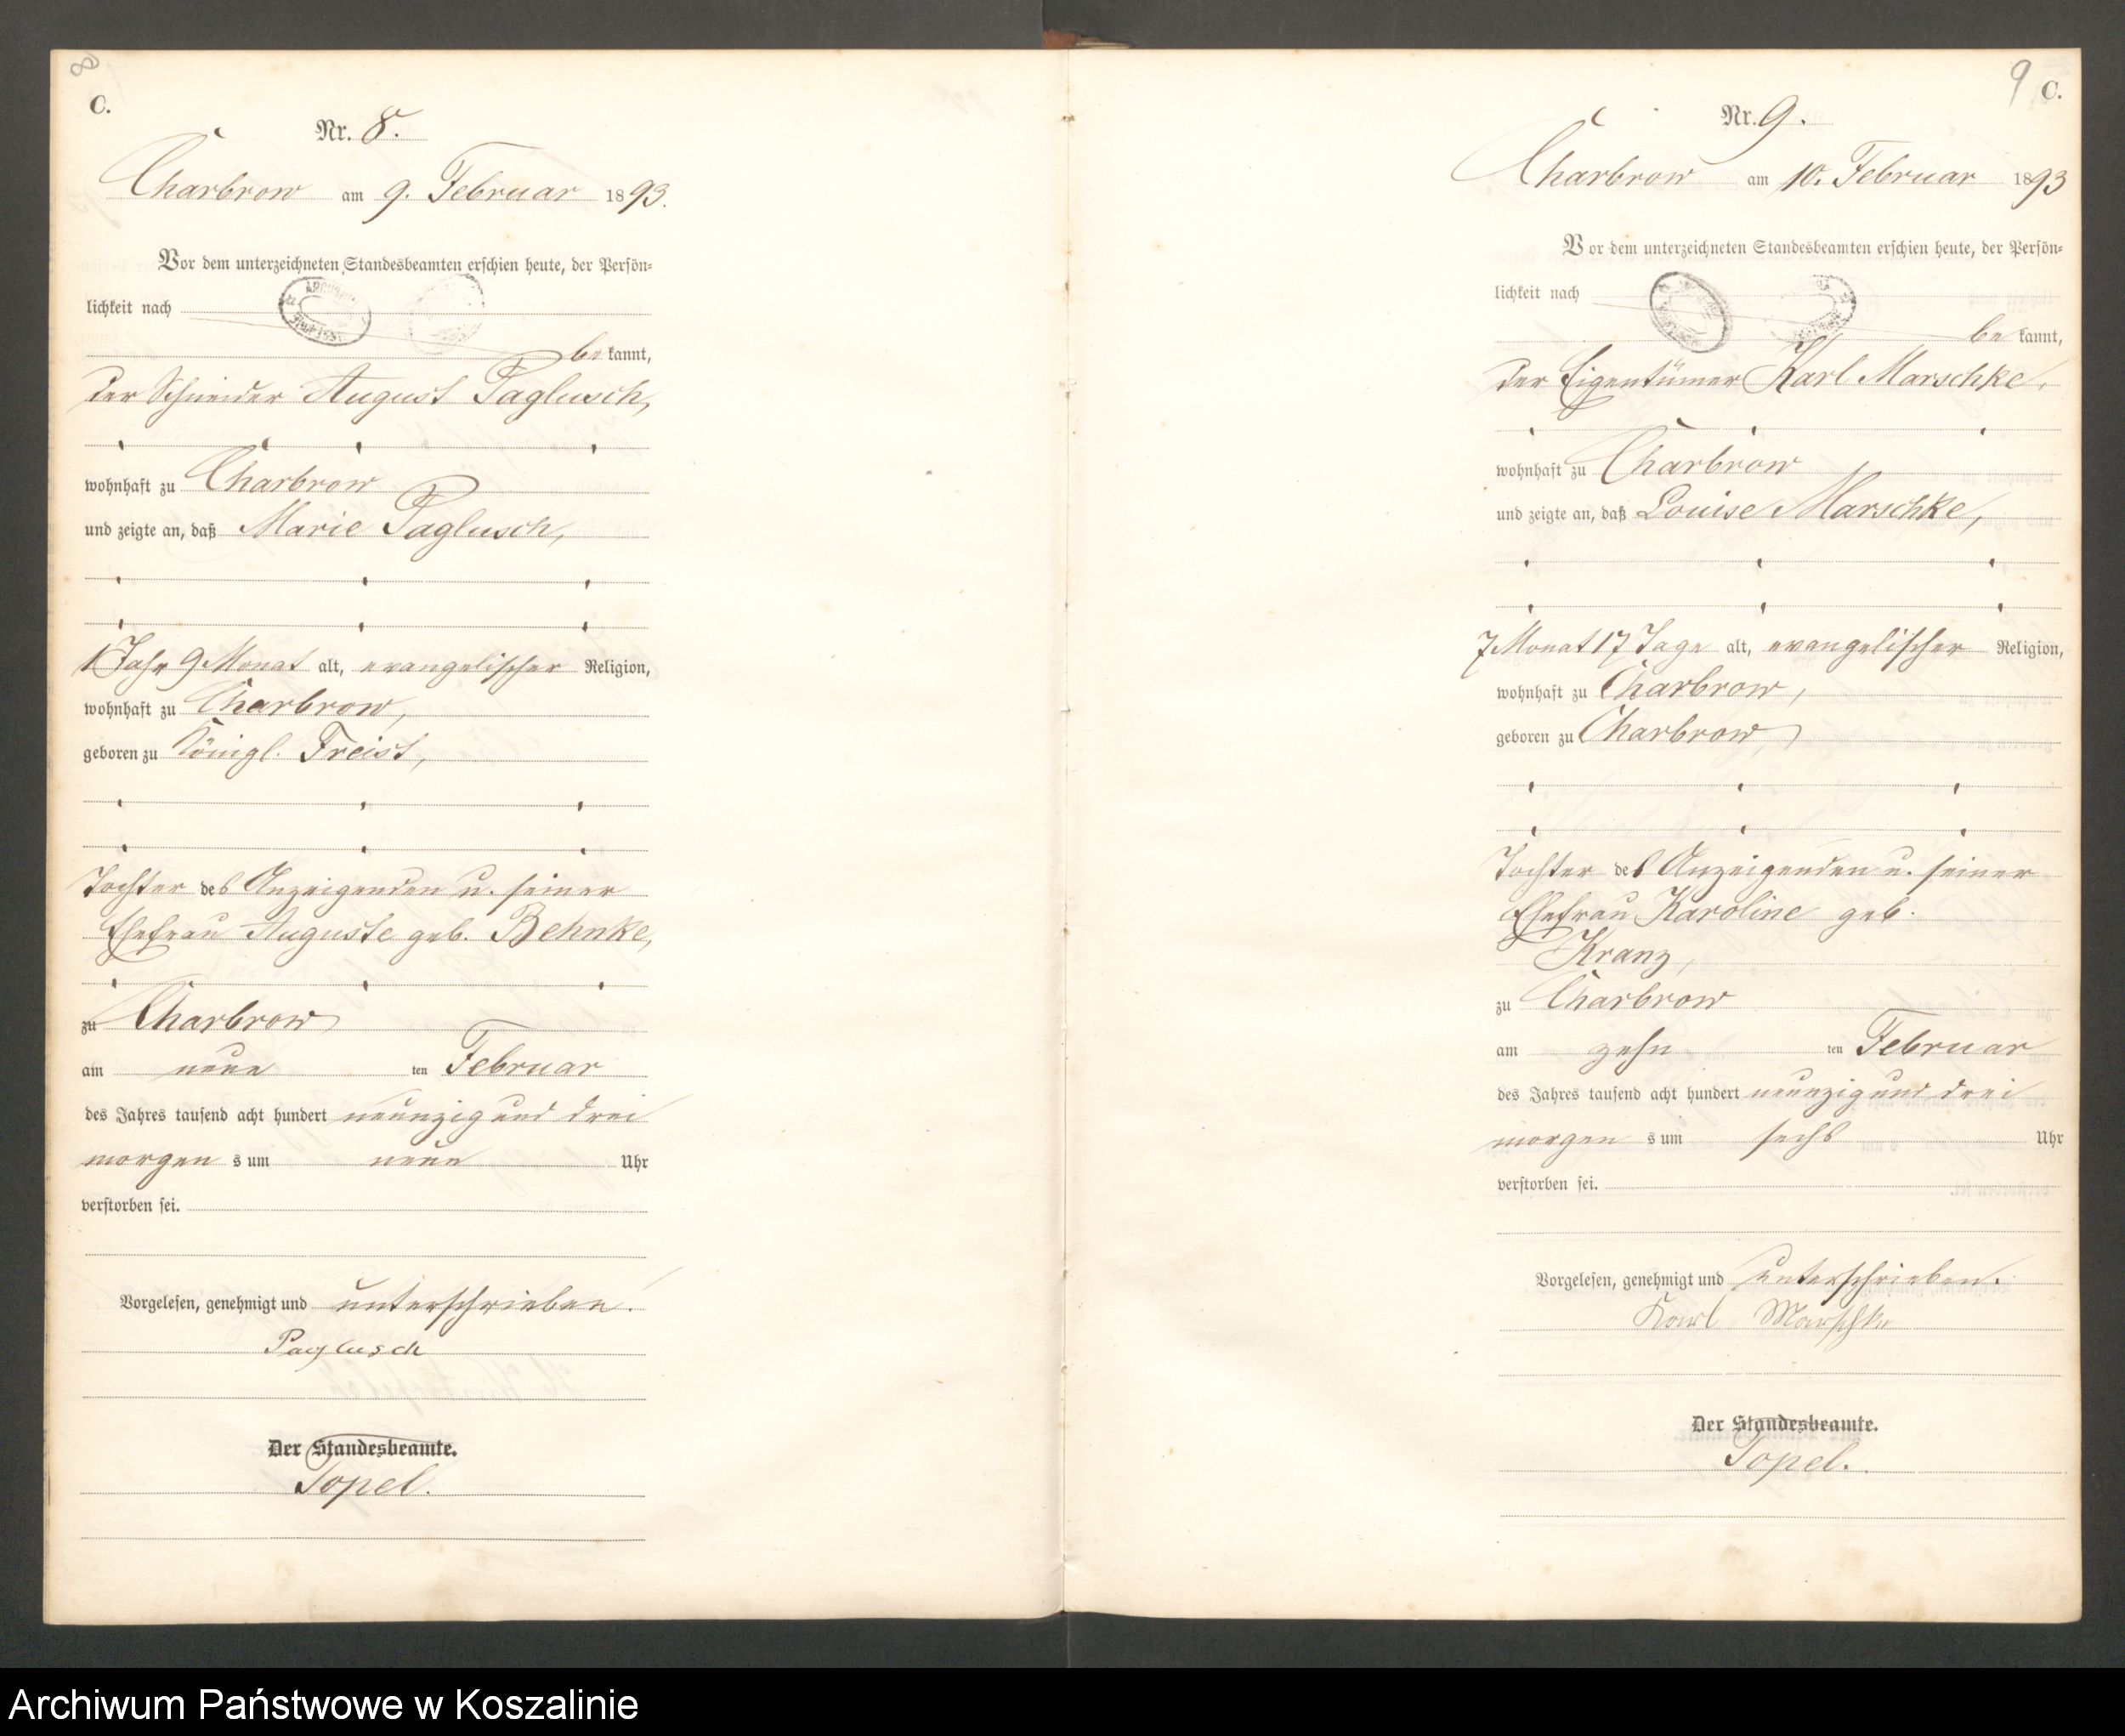 8
C.
Nr. 8.
Charbrow am 9. Februar 1893.
Vor dem unterzeichneten Standesbeamten erschien heute, der Persön=
lichkeit nach
be kannt,
der Schneider August Paglusch,
wohnhaft zu Charbrow
und zeigte an, daß Marie Paglusch,
1 Jahr 9 Monat alt, evangelischer Religion,
wohnhaft zu Charbrow,
geboren zu Königl. Freist,
Tochter des Anzeigenden u. seiner
Ehefrau Auguste geb. Behnke,
zu Charbrow
am neun ten Februar
des Jahres tausend acht hundert neunzig und drei
morgen s um neun Uhr
verstorben sei.
Vorgelesen, genehmigt und unterschrieben.
Paglusch
Der Standesbeamte.
Topel.
9
C.
Nr. 9.
Charbrow am 10. Februar 1893
Vor dem unterzeichneten Standesbeamten erschien heute, der Persön=
lichkeit nach
be kannt,
der Eigentümer Karl Marschke,
wohnhaft zu Charbrow
und zeigte an, daß Louise Marschke,
7 Monat 17 Tage alt, evangelischer Religion,
wohnhaft zu Charbrow,
geboren zu Charbrow,
Tochter des Anzeigenden u. seiner
Ehefrau Karoline geb.
Kranz,
zu Charbrow
am zehn ten Februar
des Jahres tausend acht hundert neunzig und drei
morgen s um sechs Uhr
verstorben sei.
Vorgelesen, genehmigt und unterschrieben.
Karl Marschke
Der Standesbeamte.
Topel.
Archiwum Państwowe w Koszalinie